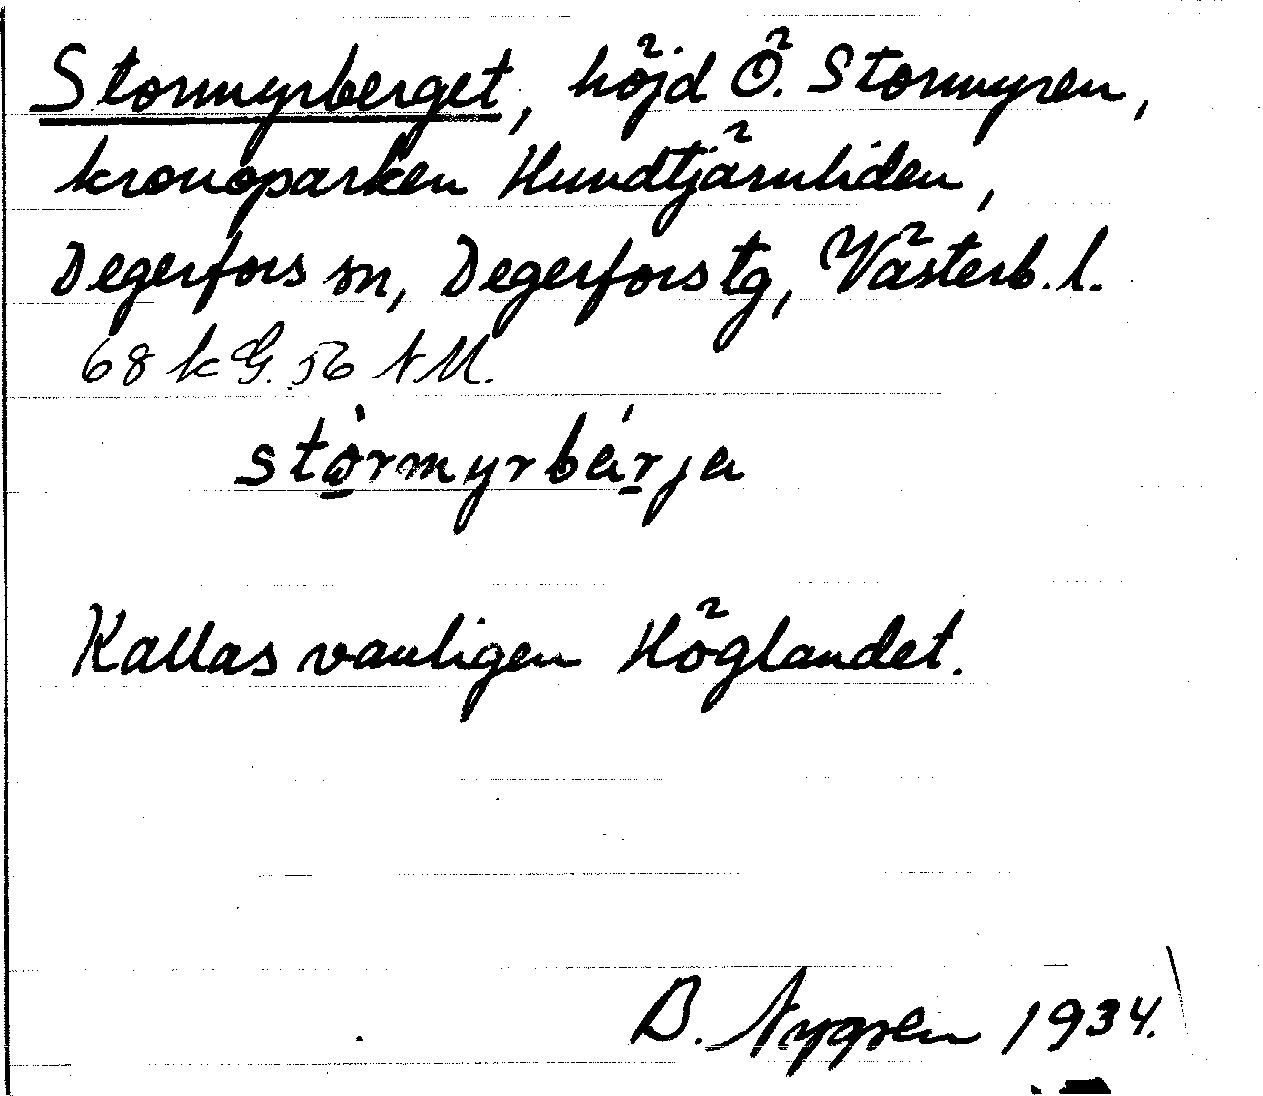 Stormyrberget, höjd Ö. Stormyren,
kronoparken Hundtjärnliden,
Degerfors sn, Degerfors tg, Västerb. l.
68 k G. 56 N M.
stórmyrbárja
Kallas vanligen Höglandet.
B. Nygren 1934.